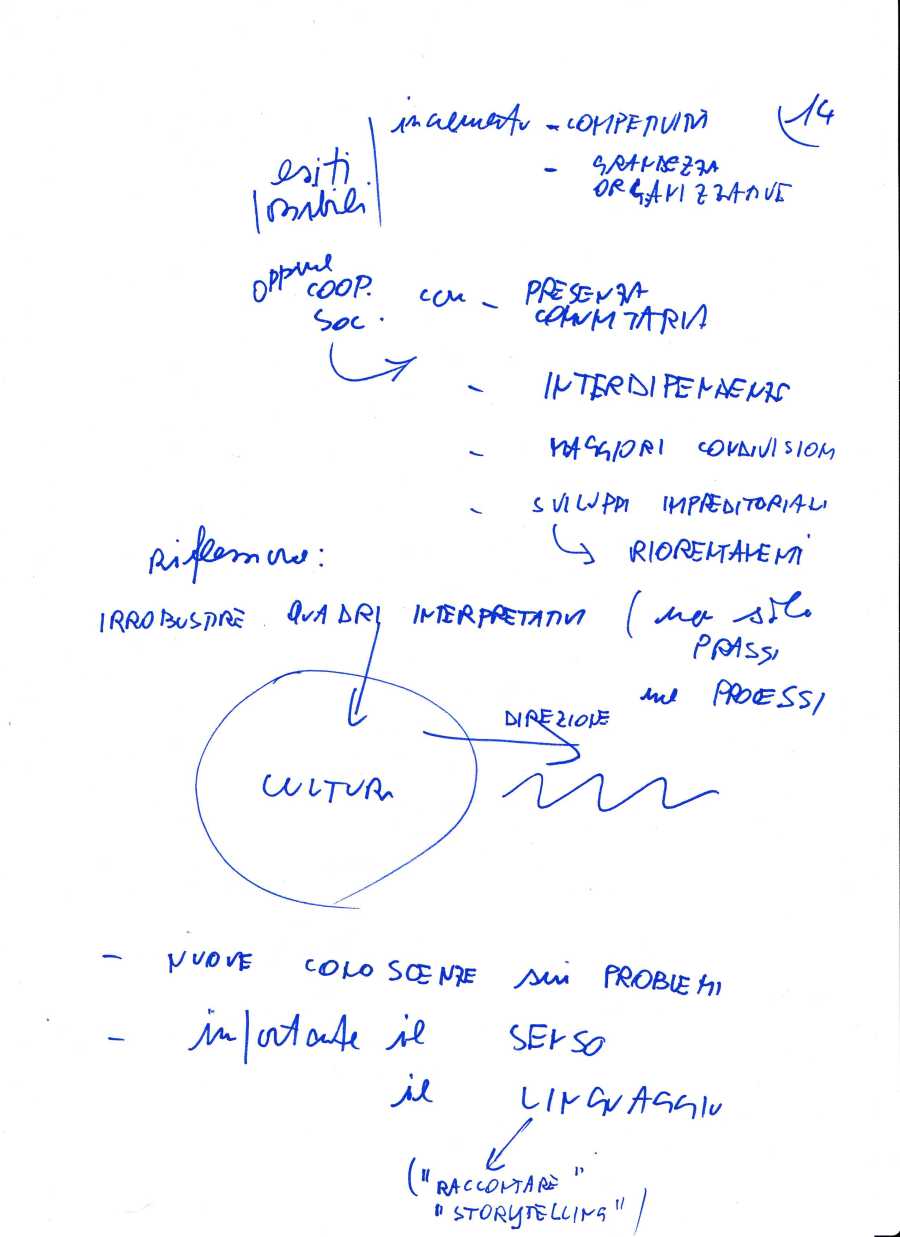 14
esiti possibili
incremento - COMPETITIVITÀ
- GRANDEZZA
ORGANIZZATIVE
oppure
COOP.
SOC.
con - PRESENZA
COMUNITARIA
- INTERDIPENDENZE
- MAGGIORI CONDIVISIONI
- SVILUPPI IMPREDITORIALI
RIORENTAMENTI
Riflessione:
IRROBUSTIRE QUADRI INTERPRETATIVI (no solo
PRASSI
PROCESSI
DIREZIONE
CULTURA
- NUOVE CONOSCENZE sui PROBLEMI
- importante il SENSO
il LINGUAGGIO
("RACCONTARE"
"STORYTELLING")